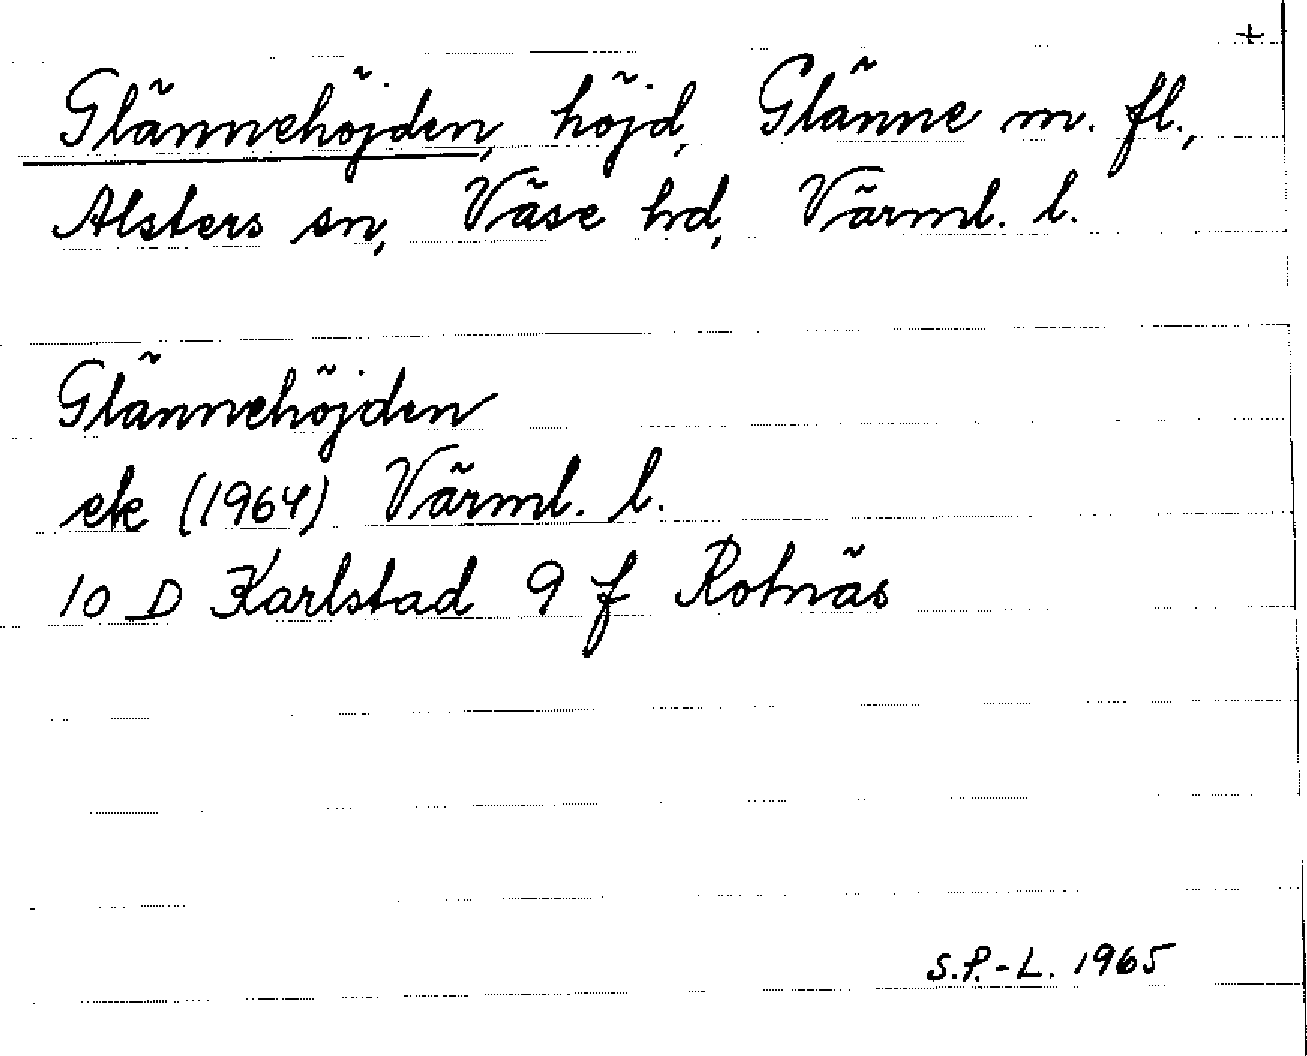 +
Glännehöjden, höjd, Glänne m. fl.,
Alsters sn, Väse hd, Värml. l.
Glännehöjden
ek (1964) Värml. l.
10 D Karlstad 9 f Rotnäs
S.P.-L. 1965